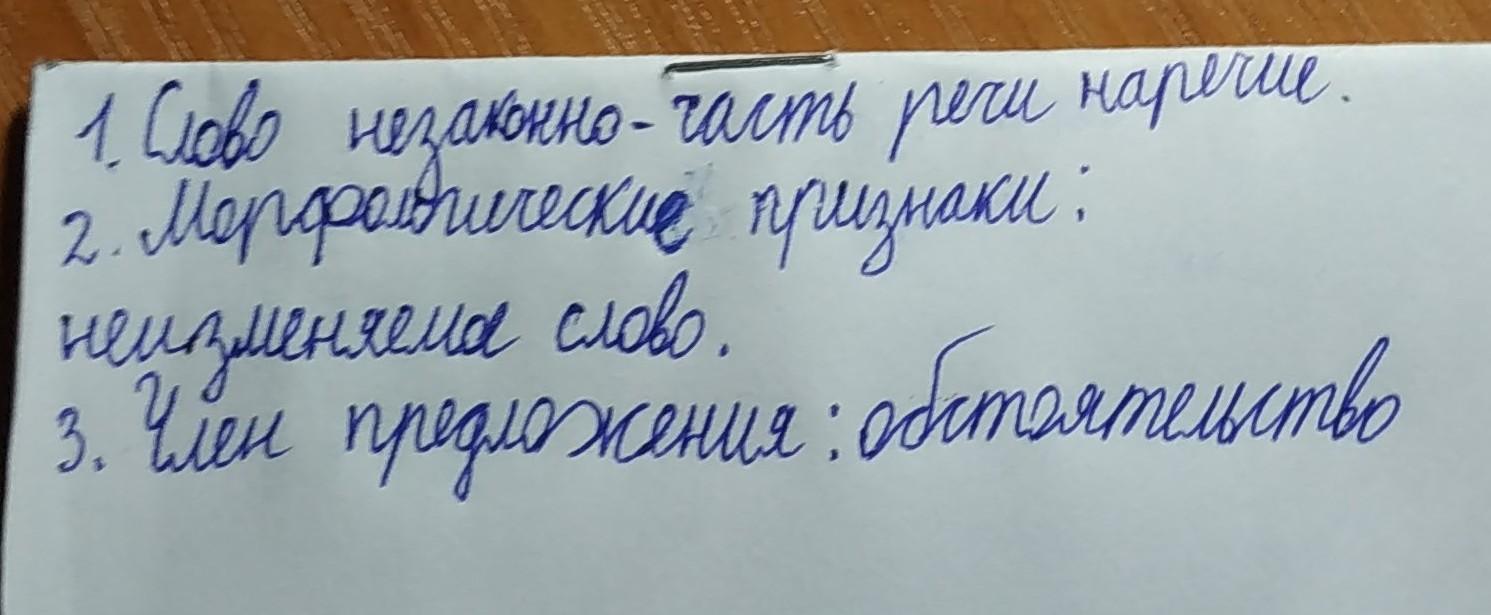 1. Слово незаконно-часть речи наречие.
2. Морфологические признаки:
неизменяема слово.
3. Член предложения: обстоятельство